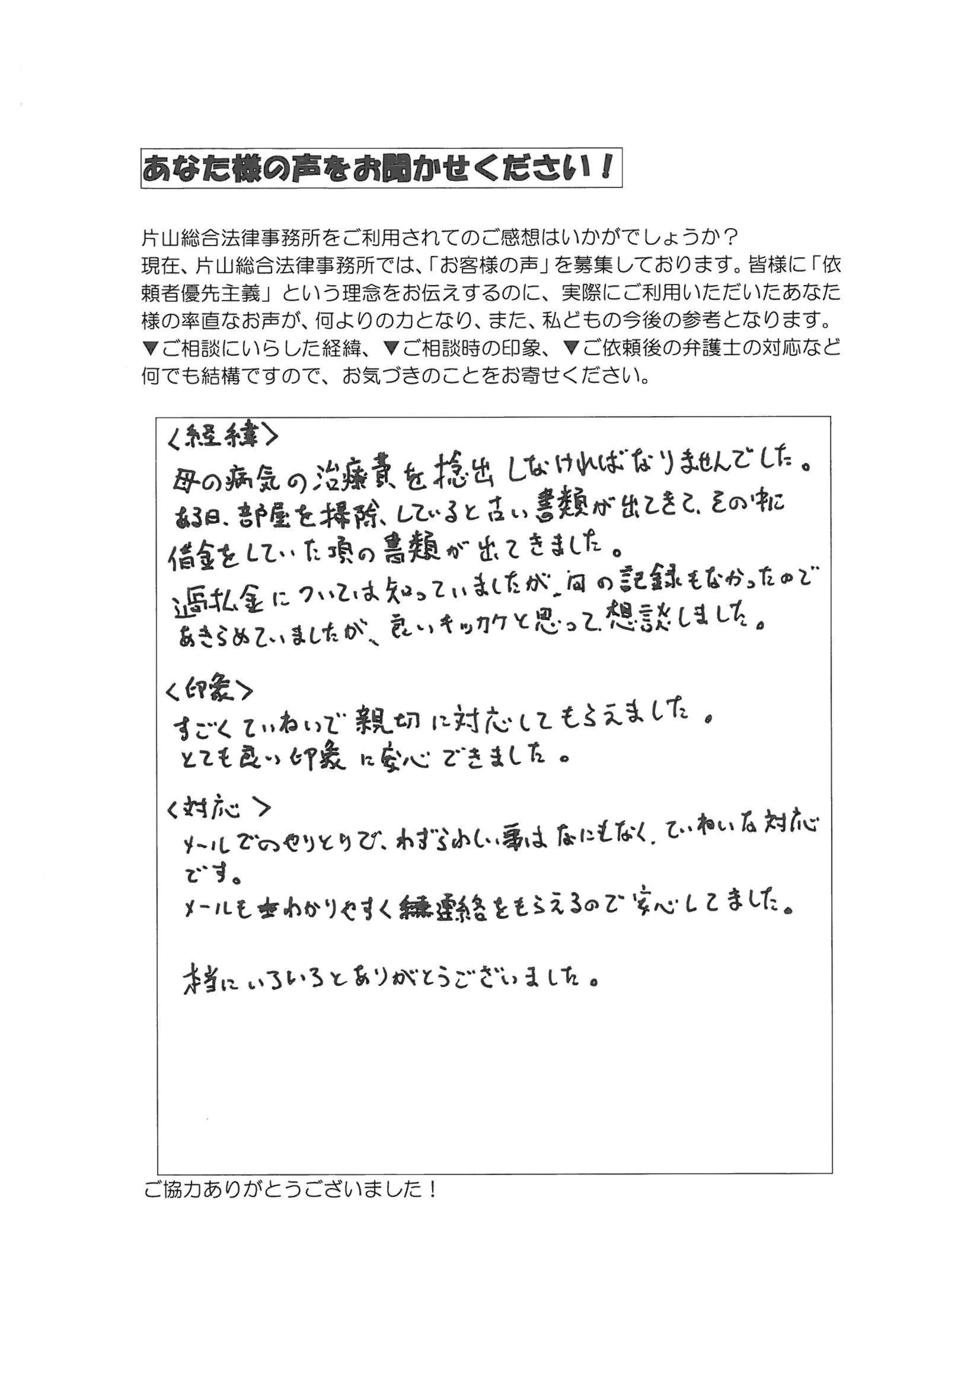 あなた様の声をお聞かせください！
片山総合法律事務所をご利用されてのご感想はいかがでしょうか？
現在、片山総合法律事務所では、「お客様の声」を募集しております。皆様に「依
頼者優先主義」という理念をお伝えするのに、実際にご利用いただいたあなた
様の率直なお声が、何よりの力となり、また、私どもの今後の参考となります。
▼ご相談にいらした経緯、▼ご相談時の印象、▼ご依頼後の弁護士の対応など
何でも結構ですので、お気づきのことをお寄せください。
＜経緯＞
母の病気の治療費を捻出しなければなりませんでした。
ある日、部屋を掃除、していると古い書類が出てきて、その中に
借金をしていた項の書類が出てきました。
過払金については知っていましたが、何の記録もなかったので
あきらめていましたが、良いキッカケと思って、想談しました。
＜印象＞
すごくていねいで親切に対応してもらえました。
とても良い印象に安心できました。
＜対応＞
メールでのやりとりで、わずらわしい事はなにもなく、ていねいな対応
です。
メールもわかりやすく連絡をもらえるので安心してました。
本当にいろいろとありがとうございました。
ご協力ありがとうございました！